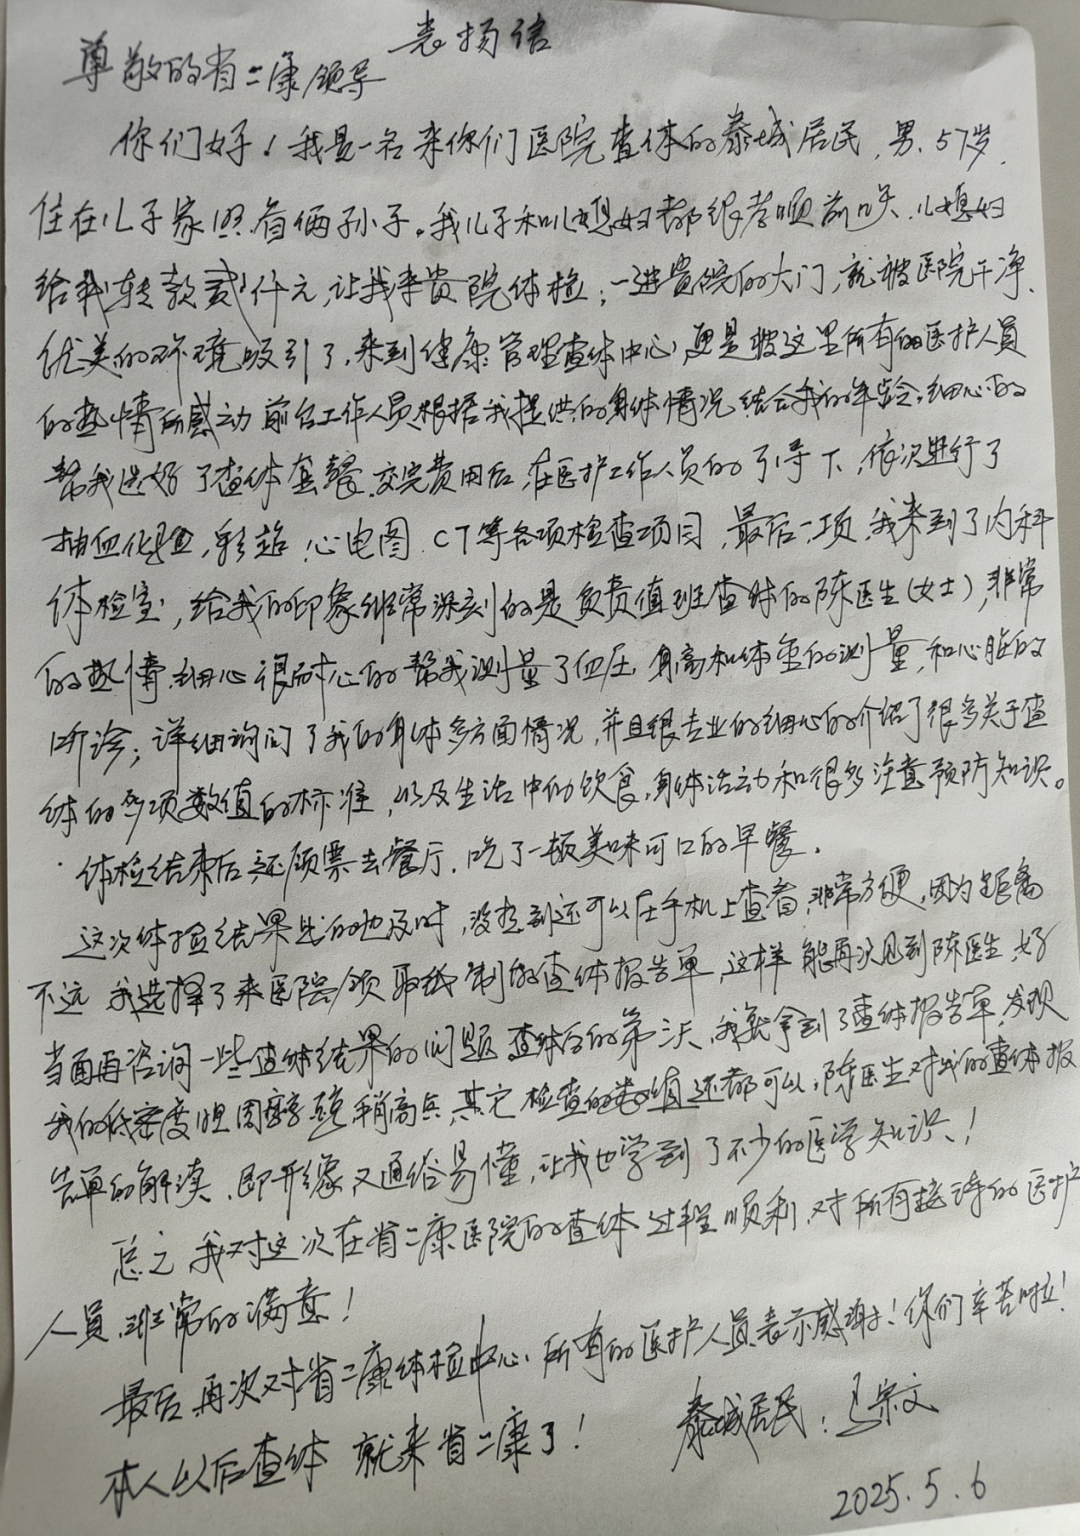 表扬信
尊敬的省二康领导
你们好！我是一名来你们医院查体的泰城居民，男，57岁，
住在儿子家照看俩孙子。我儿子和儿媳妇都很孝顺前几天，儿媳妇
给我转款贰仟元，让我来贵院体检；一进贵院的大门，就被医院干净、
优美的环境吸引了，来到健康管理查体中心，更是被这里所有的医护人员
的热情所感动 前台工作人员根据我提供的身体情况结合我的年龄，细心的
帮我选好了查体套餐，交完费用后，在医护工作人员的引导下，依次进行了
抽血化验，彩超，心电图，CT等各项检查项目，最后一项，我来到了内科
体检室，给我的印象非常深刻的是负责值班查体的陈医生（女士），非常
的热情，细心很耐心的帮我测量了血压，身高和体重的测量，和心脏的
听诊；详细询问了我的身体多方面情况，并且很专业的细心的介绍了很多关于查
体的各项数值的标准，以及生活中的饮食，身体活动和很多注意预防知识。
体检结束后还领票去餐厅，吃了一顿美味可口的早餐。
这次体检结果出的也及时，没想到还可以在手机上查看，非常方便，因为距离
不远 我选择了来医院领取纸制的查体报告单，这样能再次见到陈医生，好
当面再咨询一些查体结果的问题 查体后的第三天，我就拿到了查体报告单，发现
我的低密度胆固醇 稍高点，其它检查的数值还都可以，陈医生对我的查体报
告单的解读，即形像又通俗易懂，让我也学到了不少的医学知识！
总之，我对这次在省二康医院的查体过程顺利，对所有接待的医护
人员，非常的满意！
最后再次对省二康体检中心，所有的医护人员表示感谢！你们辛苦啦！
本人以后查体 就来省二康了！
泰城居民：宗文
2025.5.6